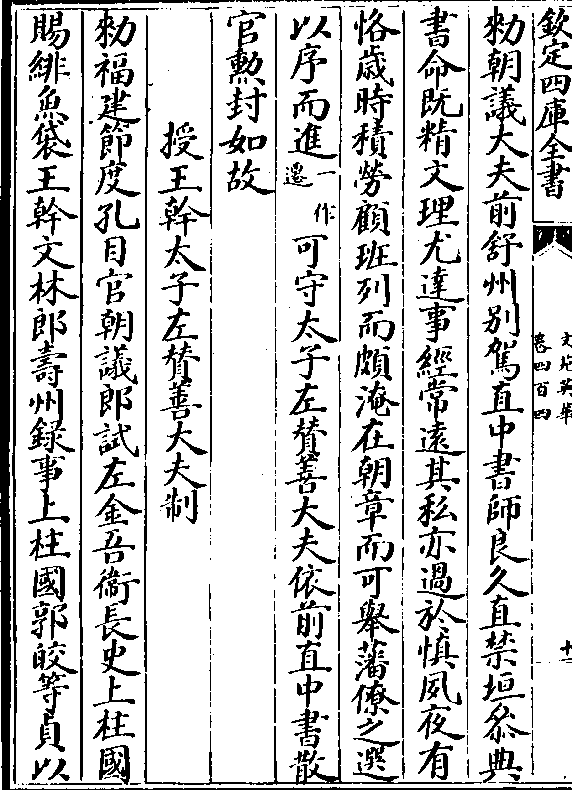 欽定四庫全書
文苑英華
卷四百四
十
勑朝議大夫前舒州别駕直中書師良久直禁垣叅典
書命既精文理尤達事經常遠其私亦過於慎夙夜有
恪歳時積勞顧班列而頗淹在朝章而可舉藩僚之選
以序而進一作遷可守太子左賛善大夫依前直中書散
官勲封如故
授王幹太子左賛善大夫制
勑福建節度孔目官朝議郎試左金吾衛長史上柱國
賜緋魚袋王幹文林郎壽州録事上柱國郭皎等貟以